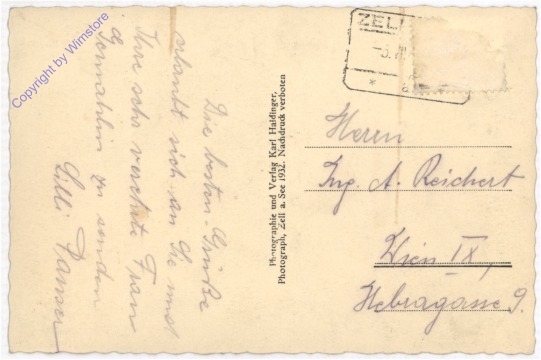 Copyright by Wimstore
ZELL
Die besten Grüße
erlaubt sich an Sie und
Ihre sehr verehrte Frau
Gemahlin zu senden
Lilli
Photographie und Verlag Karl Haidinger,
Photograph, Zell a. See 1932. Nachdruck verboten
Herrn
Ing. A. Reichert
Wien IX,
Hebragasse 9.